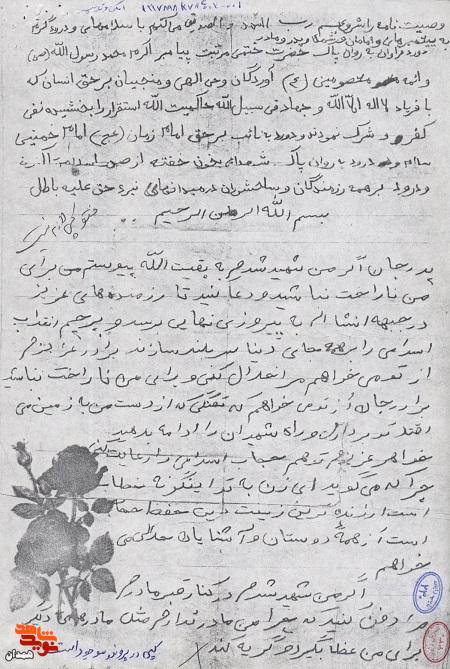 وصیت نامه را شروع
به پیغمبرهای و امامان
درود فراوان به روان پاک حضرت ختمی مرتبت پیامبر اکرم محمد رسول الله (ص)
وائمه معصومین (ع) آوردگان وحی الهی و منجیان بر حق انسان که
با فریاد لااله الاالله و جهاد فی سبیل الله حاکمیت الله استقرار را بخشیده نفی
کفر و شرک نمودند و درود به نائب بر حق امام زمان (عج) امام خمینی
سلام و درود به روان پاک شهدای بخون خفته از صدر اسلام تا
و درود بر همه رزمندگان و سلحشوران در میدانهای نبرد حق علیه باطل
بسم الله الرحمن الرحیم
پدر جان اگر من شهید شدم به بقیت الله پیوستم برای
من ناراحت نباشید و دعا کنید تا رزمنده های عزیز
در جبهه انشاالله به پیروزی نهایی برسد و پرچم انقلاب
اسلامی را دنیا سربلند سازند برادر عزیزم
از تو می خواهم مرا حلال کنی و برای من ناراحت نباشید
برادر جان از تو می خواهم که تفنگی که از دست من به زمین می
افتد تو برداری و راه شهیدان را ادامه بدهید
خواهر عزیزم تو هم حجاب اسلامی را رعایت کنی
چرا که می گوید ای زن به تو اینگونه خطاب
است ارزنده ترین زینت زن حفظ حجاب
است از همهٔ دوستان و آشنایان حلالی می
خواهم
اگر من شهید شدم در کنار قبر مادرم
مرا دفن کنید که چرا من مادر ندارم مثل مادرهای دیگر
برای من عطا بگیرد و گریه کند
کپی در پرونده موجود است
نوید شاهد
همدان